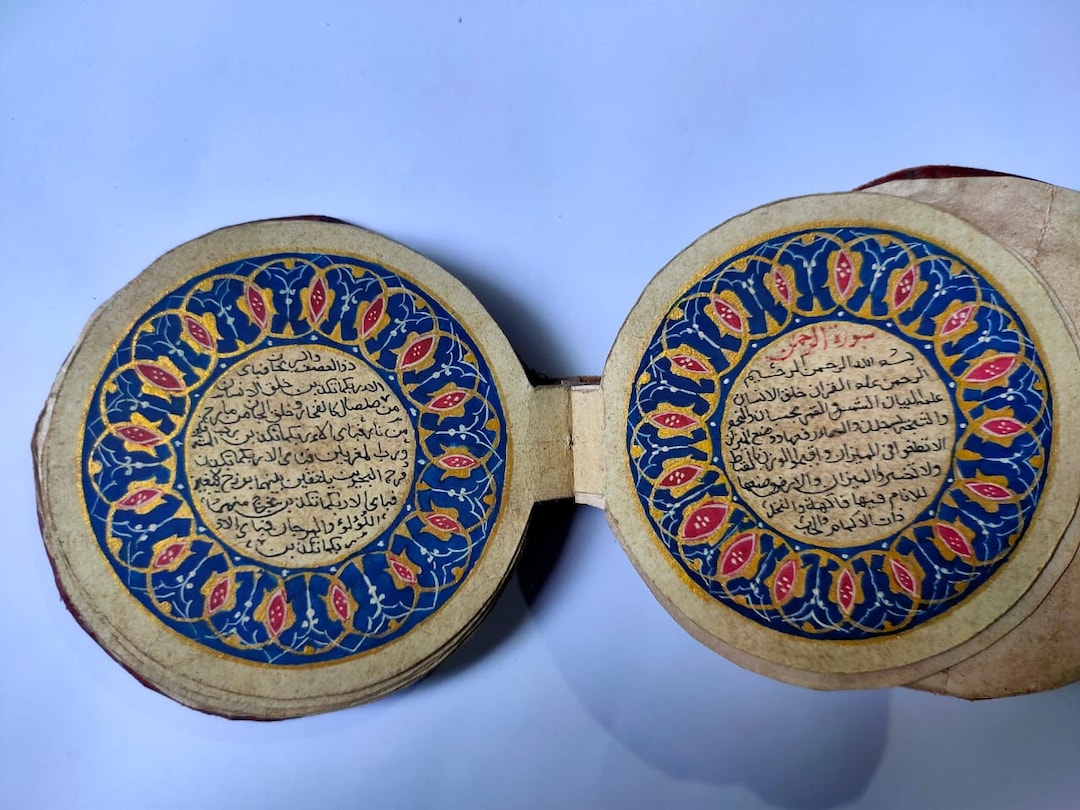 سورة الرحمن
بسم الله الرحمن الرحيم
الرحمن علم القران خلق الانسان
علمه البيان الشمس والقمر بحسبان والنجم
والشجر يسجدان والسماء رفعها ووضع الميزان
الا تطغوا في الميزان واقيموا الوزن بالقسط
ولا تخسروا الميزان والارض وضعها
للانام فيها فاكهة والنخل
ذات الاكمام والحب
ذو العصف والريحان فباي
الاء ربكما تكذبن خلق الانسان
من صلصال كالفخار وخلق الجان من مارج
من نار فباي الاء ربكما تكذبن رب
ورب المغربين فباي الاء ربكما تكذبن
مرج البحرين يلتقين بينهما برزخ لا يبغين
فباي الاء ربكما تكذبن يخرج منهما
اللؤلؤ والمرجان فباي الاء
ربكما تكذبن